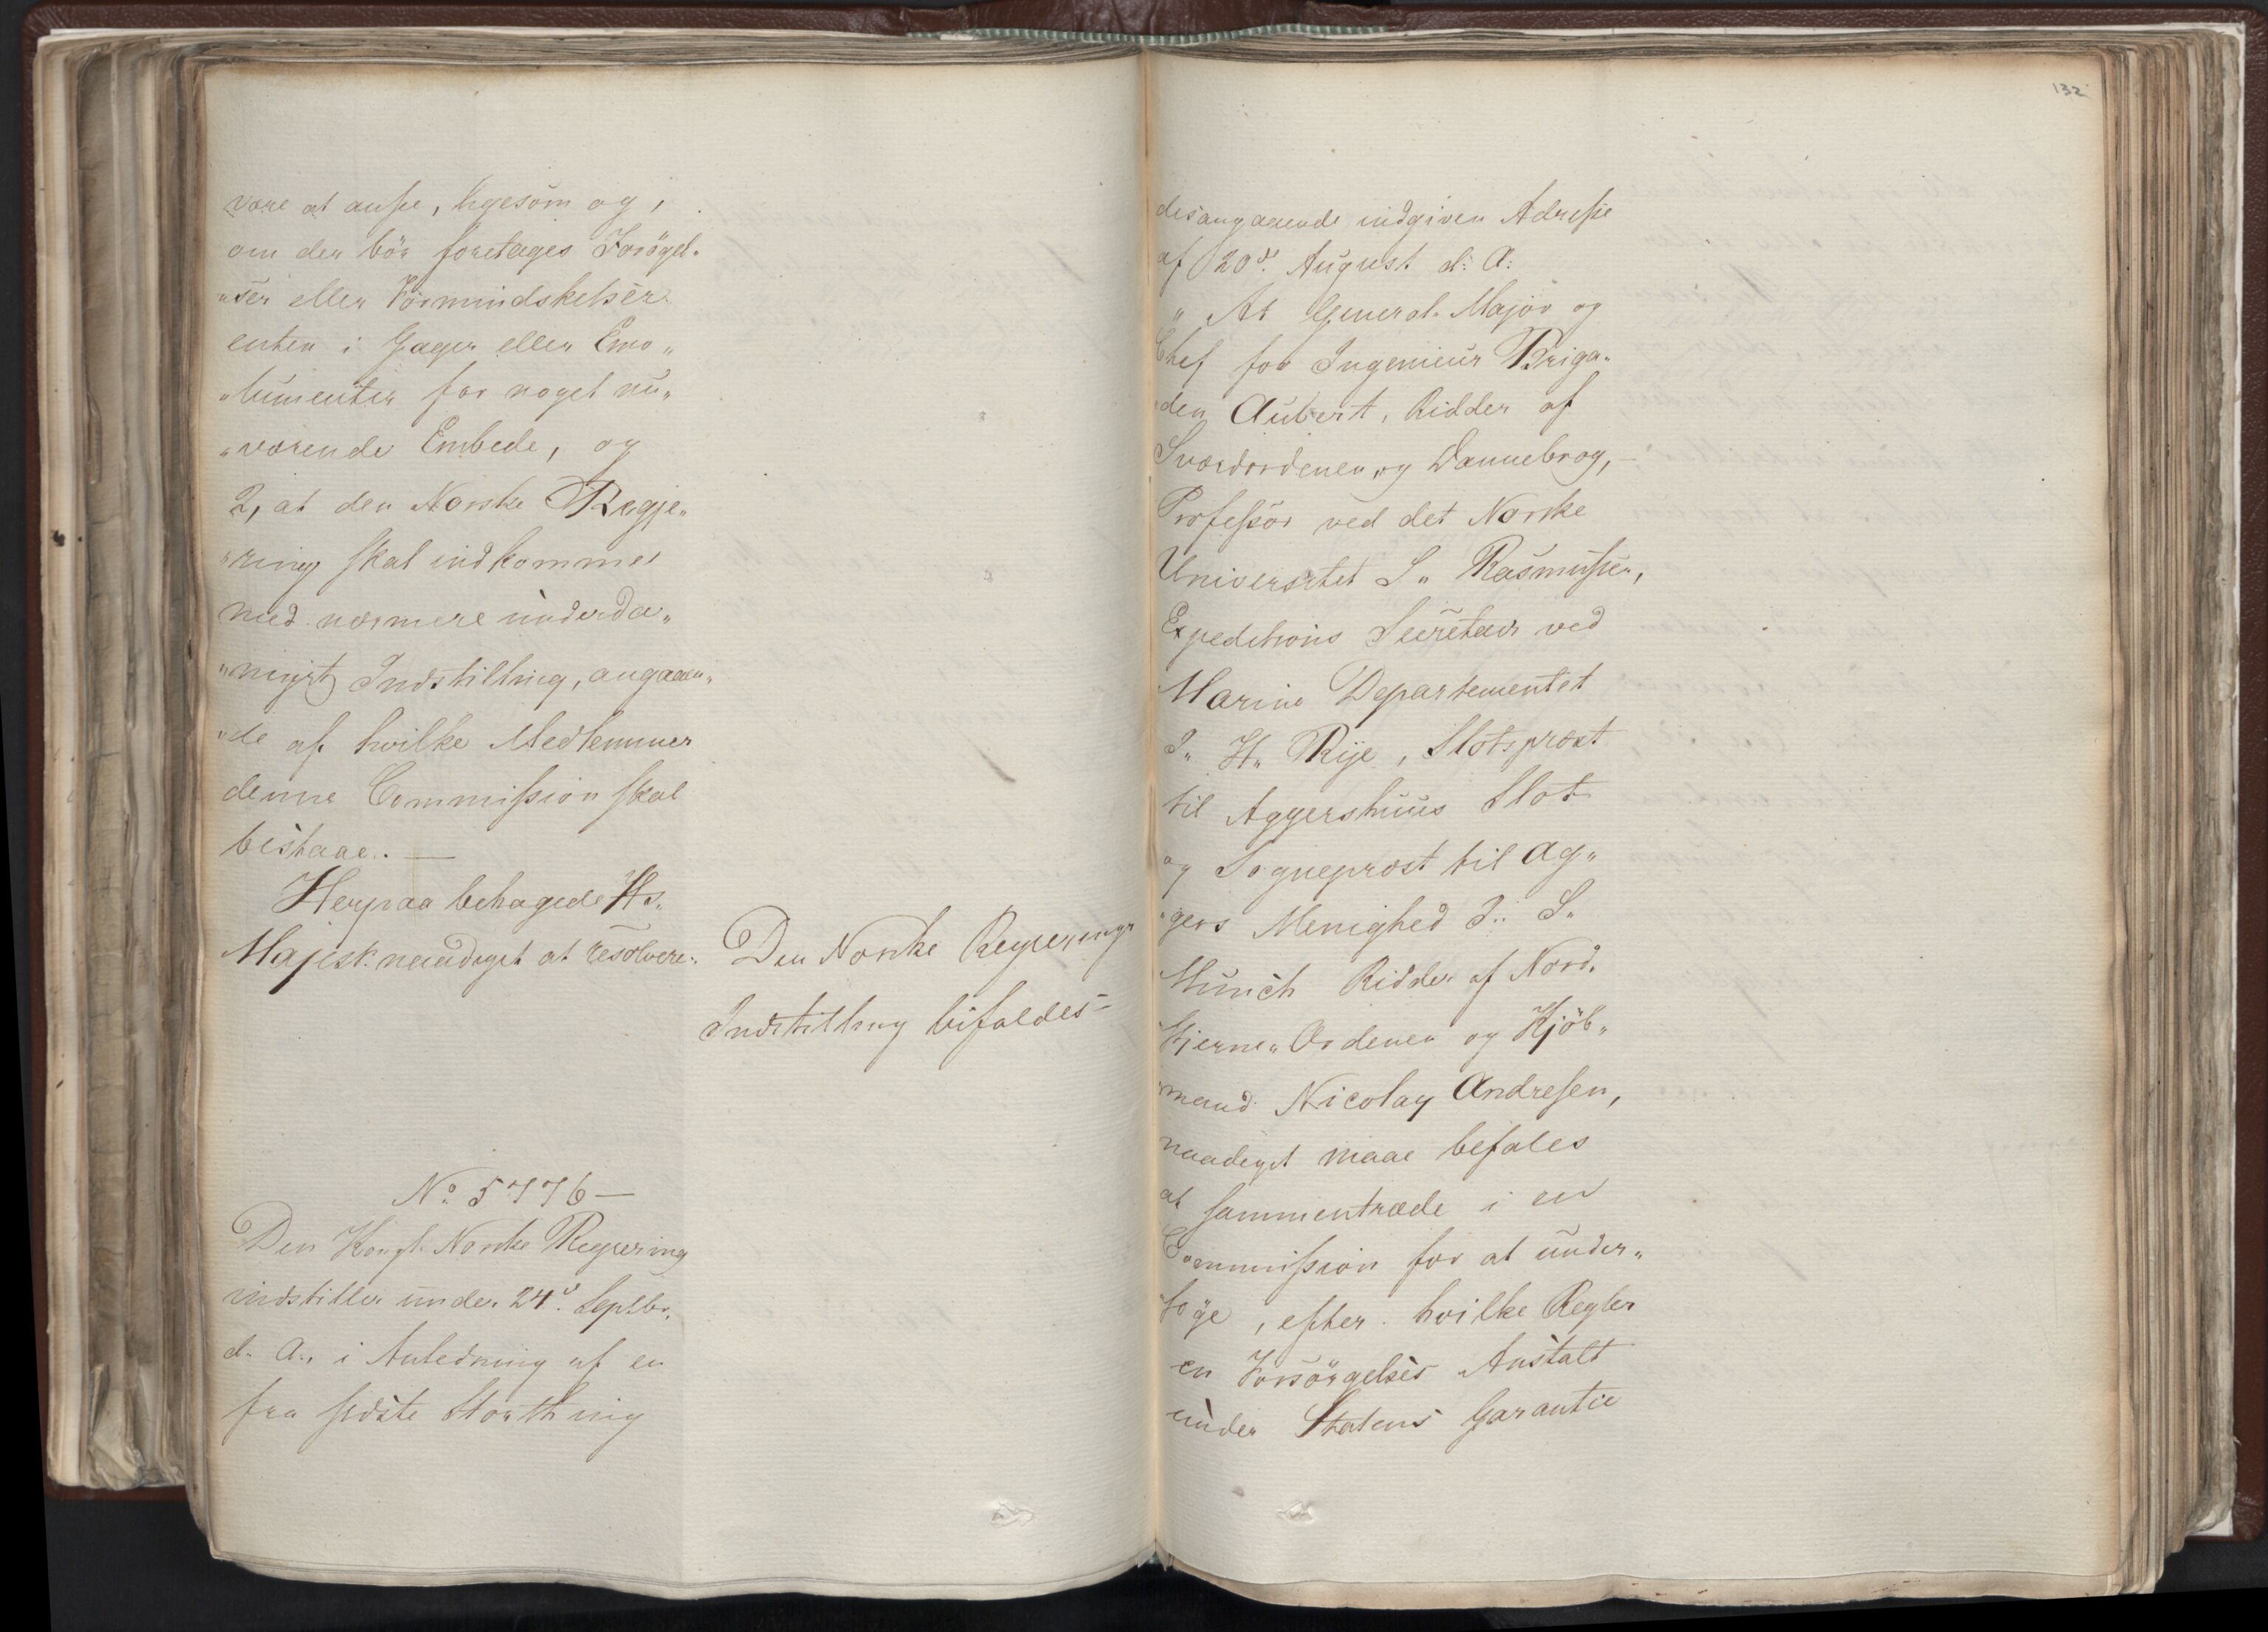 være at ansee, ligesom og,
om der bör foretages Forögel„
„ser eller Formindskelser
enten i Gager eller Emo„
„lumenter for noget nu„
„værende Embede, og
2, at den Norske Regje„
„ring skal indkomme
med nærmere underda„
„nigst Indstilling, angaaen„
„de af hvilke Medlemmer
denne Commission skal
bestaae. —
Herpaa behagede Hs.
Majest. naadigst at resolvere:
Den Norske Regjerings
Indstilling bifaldes –
No. 5776 —
Den Kongl. Norske Regjering
indstiller under 24d. Septbr.
d. A., i Anledning af en
fra sidste Storthing
132
desangaaende indgiven Adresse
af 20d. August d: A:
„ At General-Major og
Chef for Ingenieur Briga„
„den Aubert, Ridder af
Sværdordenen og Dannebrog, –
Professor ved det Norske
Universitet S„ Rasmussen,
Expeditions Secretair ved
Marine Departementet
J„ H„ Rye, Slotsprost
til Aggershuus Slot
og Sogneprost til Ag„
„gers Menighed J„ S„
Munch Ridder af Nord„
„stjerne„Ordenen og Kjöb„
„mand Nicolay Andresen,
naadigst maae befales
at sammentræde i en
Commission for at under„
„söge, efter hvilke Regler
en Forsörgelses Anstalt
under Statens Garantie